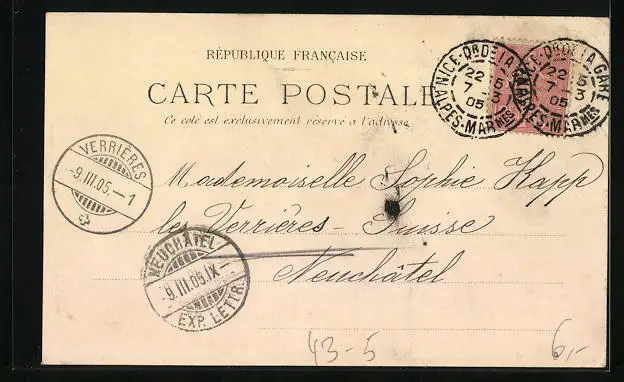 RÉPUBLIQUE FRANÇAISE
CARTE POSTALE
Ce coté est exclusivement réservé a l'adresse
NICE-Pce DE LA GARE
22 15
7 -3
05
ALPES-MARMES
NICE-Pce DE LA GARE
22 15
7 -3
05
ALPES-MARMES
VERRIÈRES
-9.III.05.-1
Mademoiselle Sophie Happ
les Verrières-Suisse
Neuchâtel
NEUCHÂTEL
-9.III.05.IX-
EXP. LETTR.
43-5
6,-